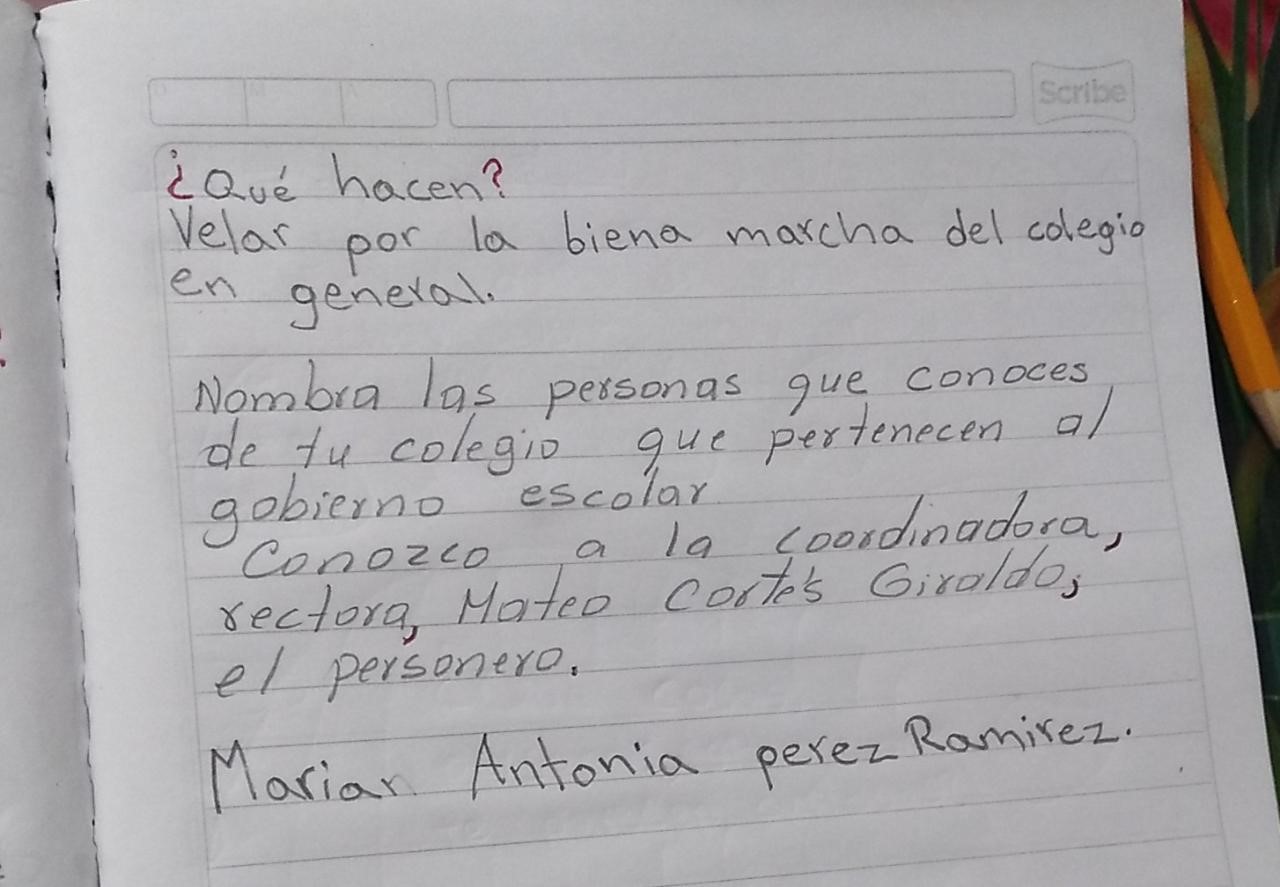 Scribe
¿Qué hacen?
Velar por la biena marcha del colegio
en general.
Nombra las personas que conoces
de tu colegio que pertenecen al
gobierno escolar
Conozco a la coordinadora,
rectora, Mateo Cortés Giraldo,
el personero.
Marian Antonia perez Ramirez.